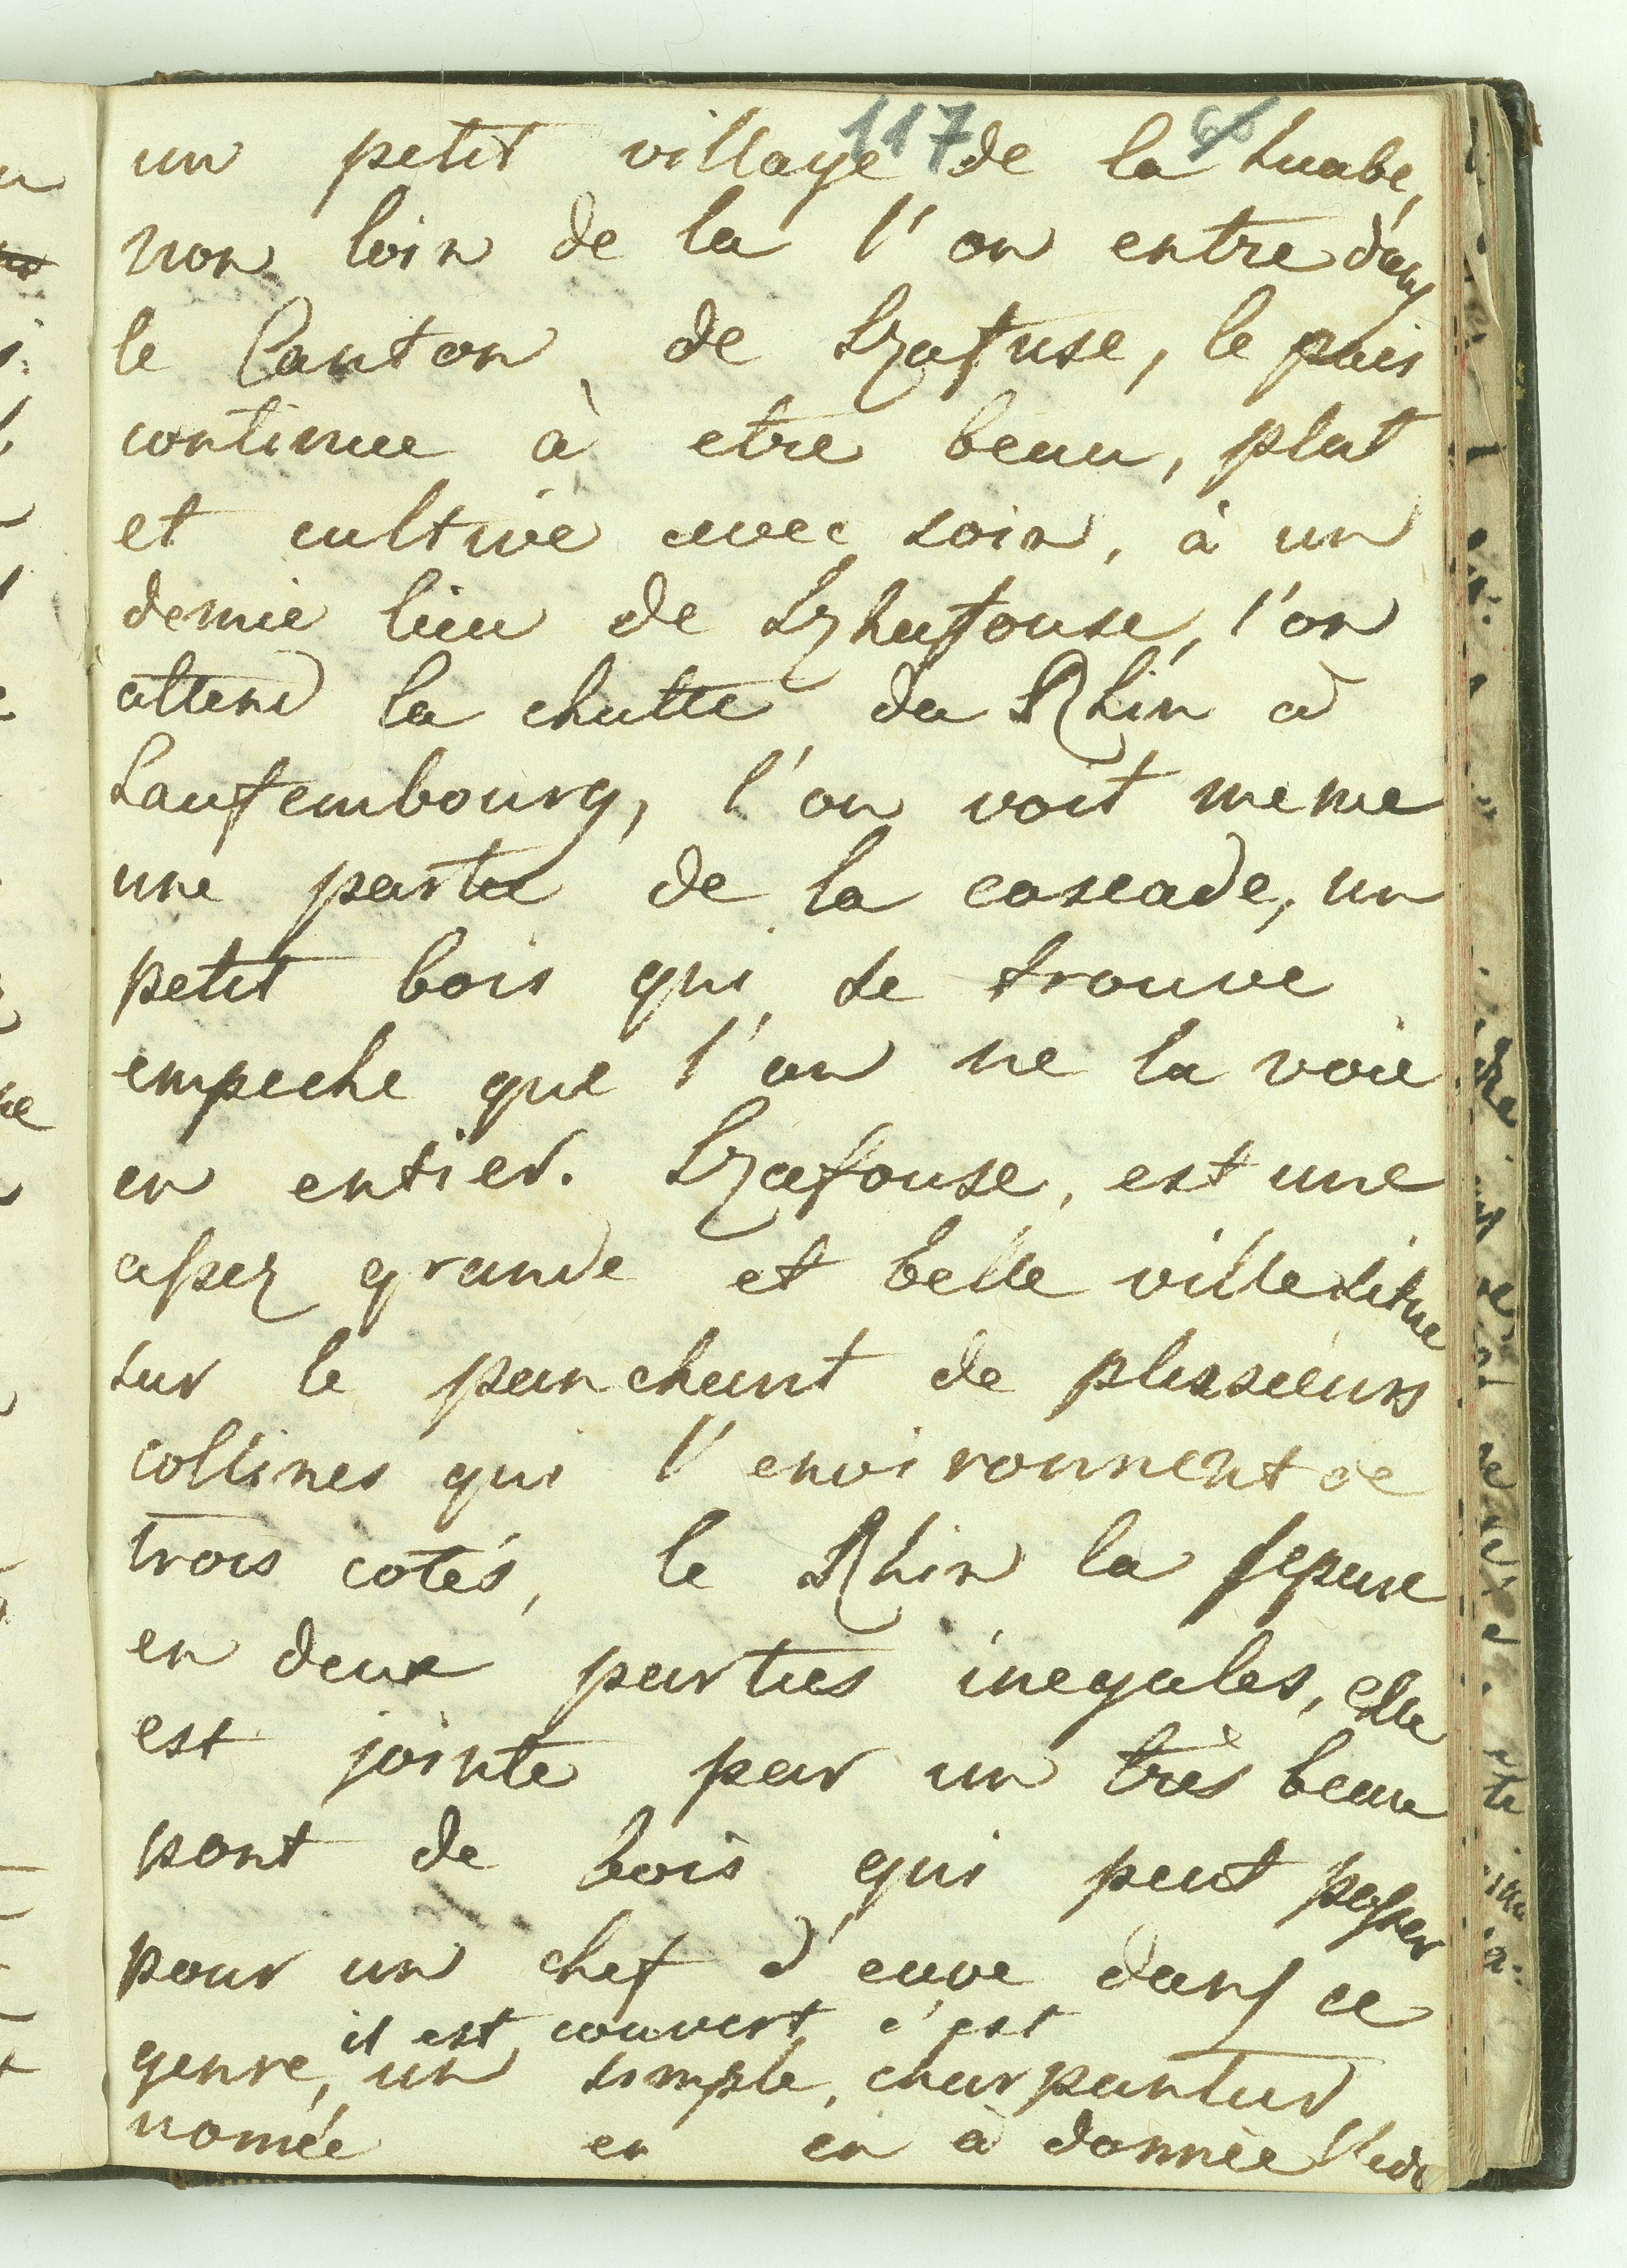 117 60
un petit village de la Suabe,
non loin de la l'on entre dans
le Canton de Szafuse, le pais
continue à etre beau, plat
et cultivé avec soin, à un
demie lieu de Szhafouse, l'on
attend la chutte du Rhin à
Laufembourg, l'on voit meme
une partie de la cascade, un
petit bois qui se trouve
empeche que l'on ne la voie
en entier. Szafouse, est une
assez grande et belle ville situe
sur le panchant de plusieurs
collines qui l'environnent de
trois cotés, le Rhin la separe
en deux parties inegales, elle
est jointe par un très beau
pont de bois qui peut passer
pour un chef d'euve dans ce
il est couvert, c'est
genre, un simple, charpantier
nomée en en à donnée l'ide